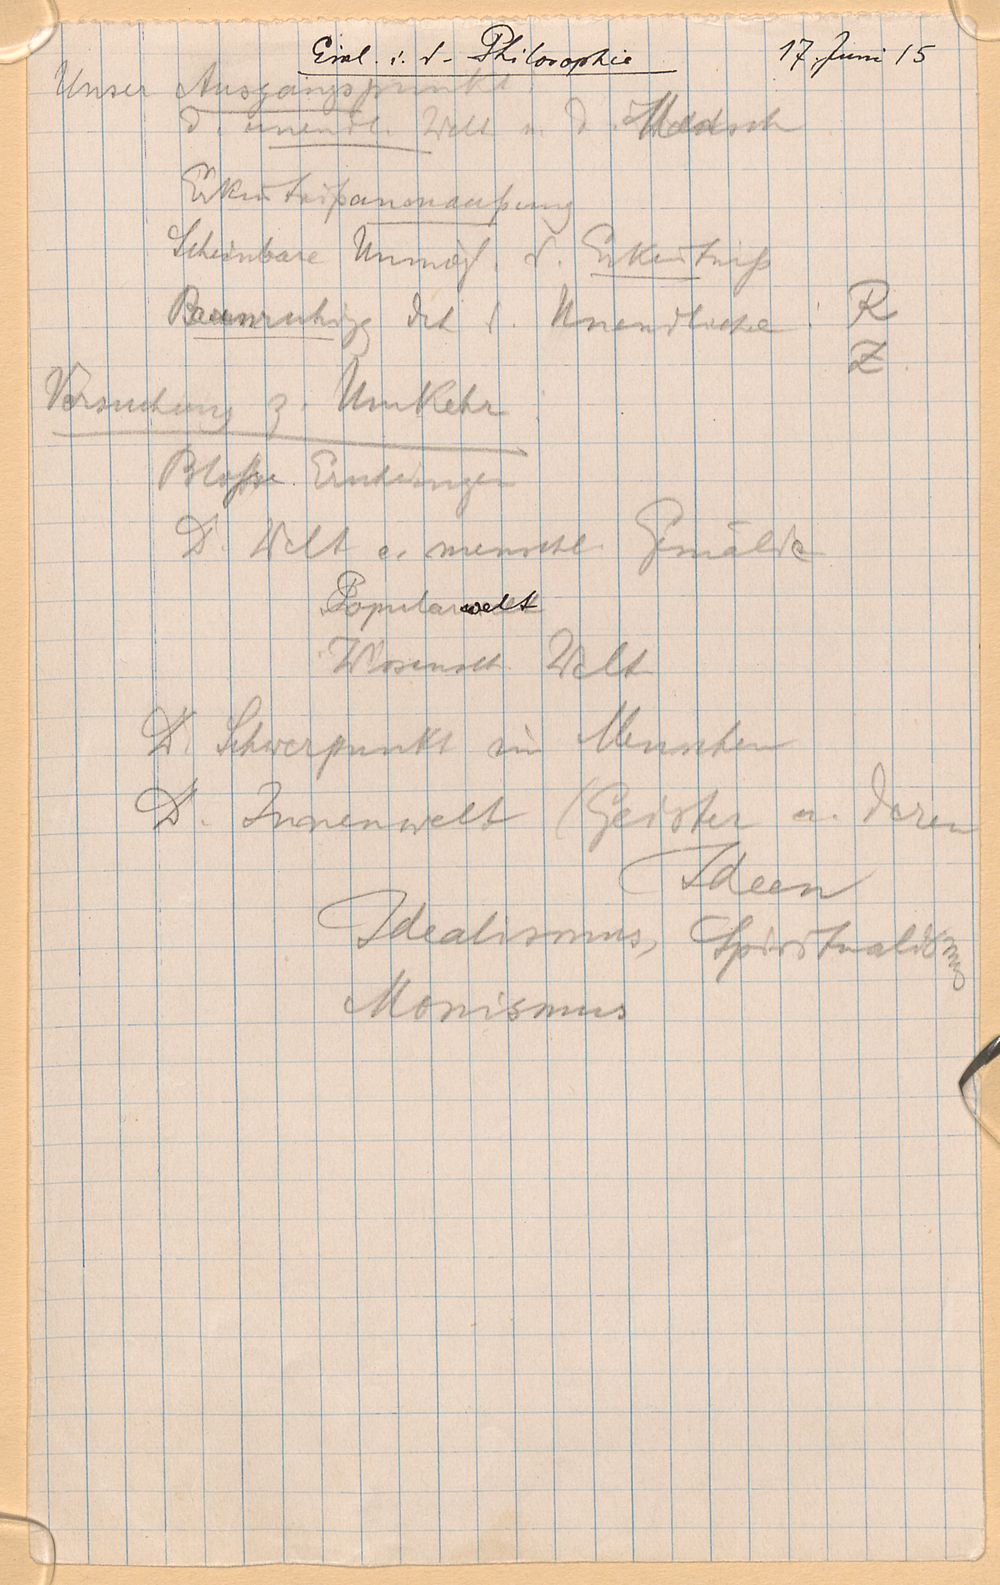 Einl. i. d. Philosophie 17. Juni 15
Unser Ausgangspunkt:
d. unendl. Welt u. d. Mensch
Erkenntniß
Scheinbare Unmögl. d. Erkenntniß
Beunruhigg dch d. Unendliche: R
Z.
Versuchung z. Umkehr:
Bloße
D. Welt e. menschl. Gemälde
Popularwelt
Wissensch. Welt
D. Schwerpunkt im Menschen
D. Innenwelt (Geister u. deren
Ideen
Idealismus, Spiritualismus
Monismus